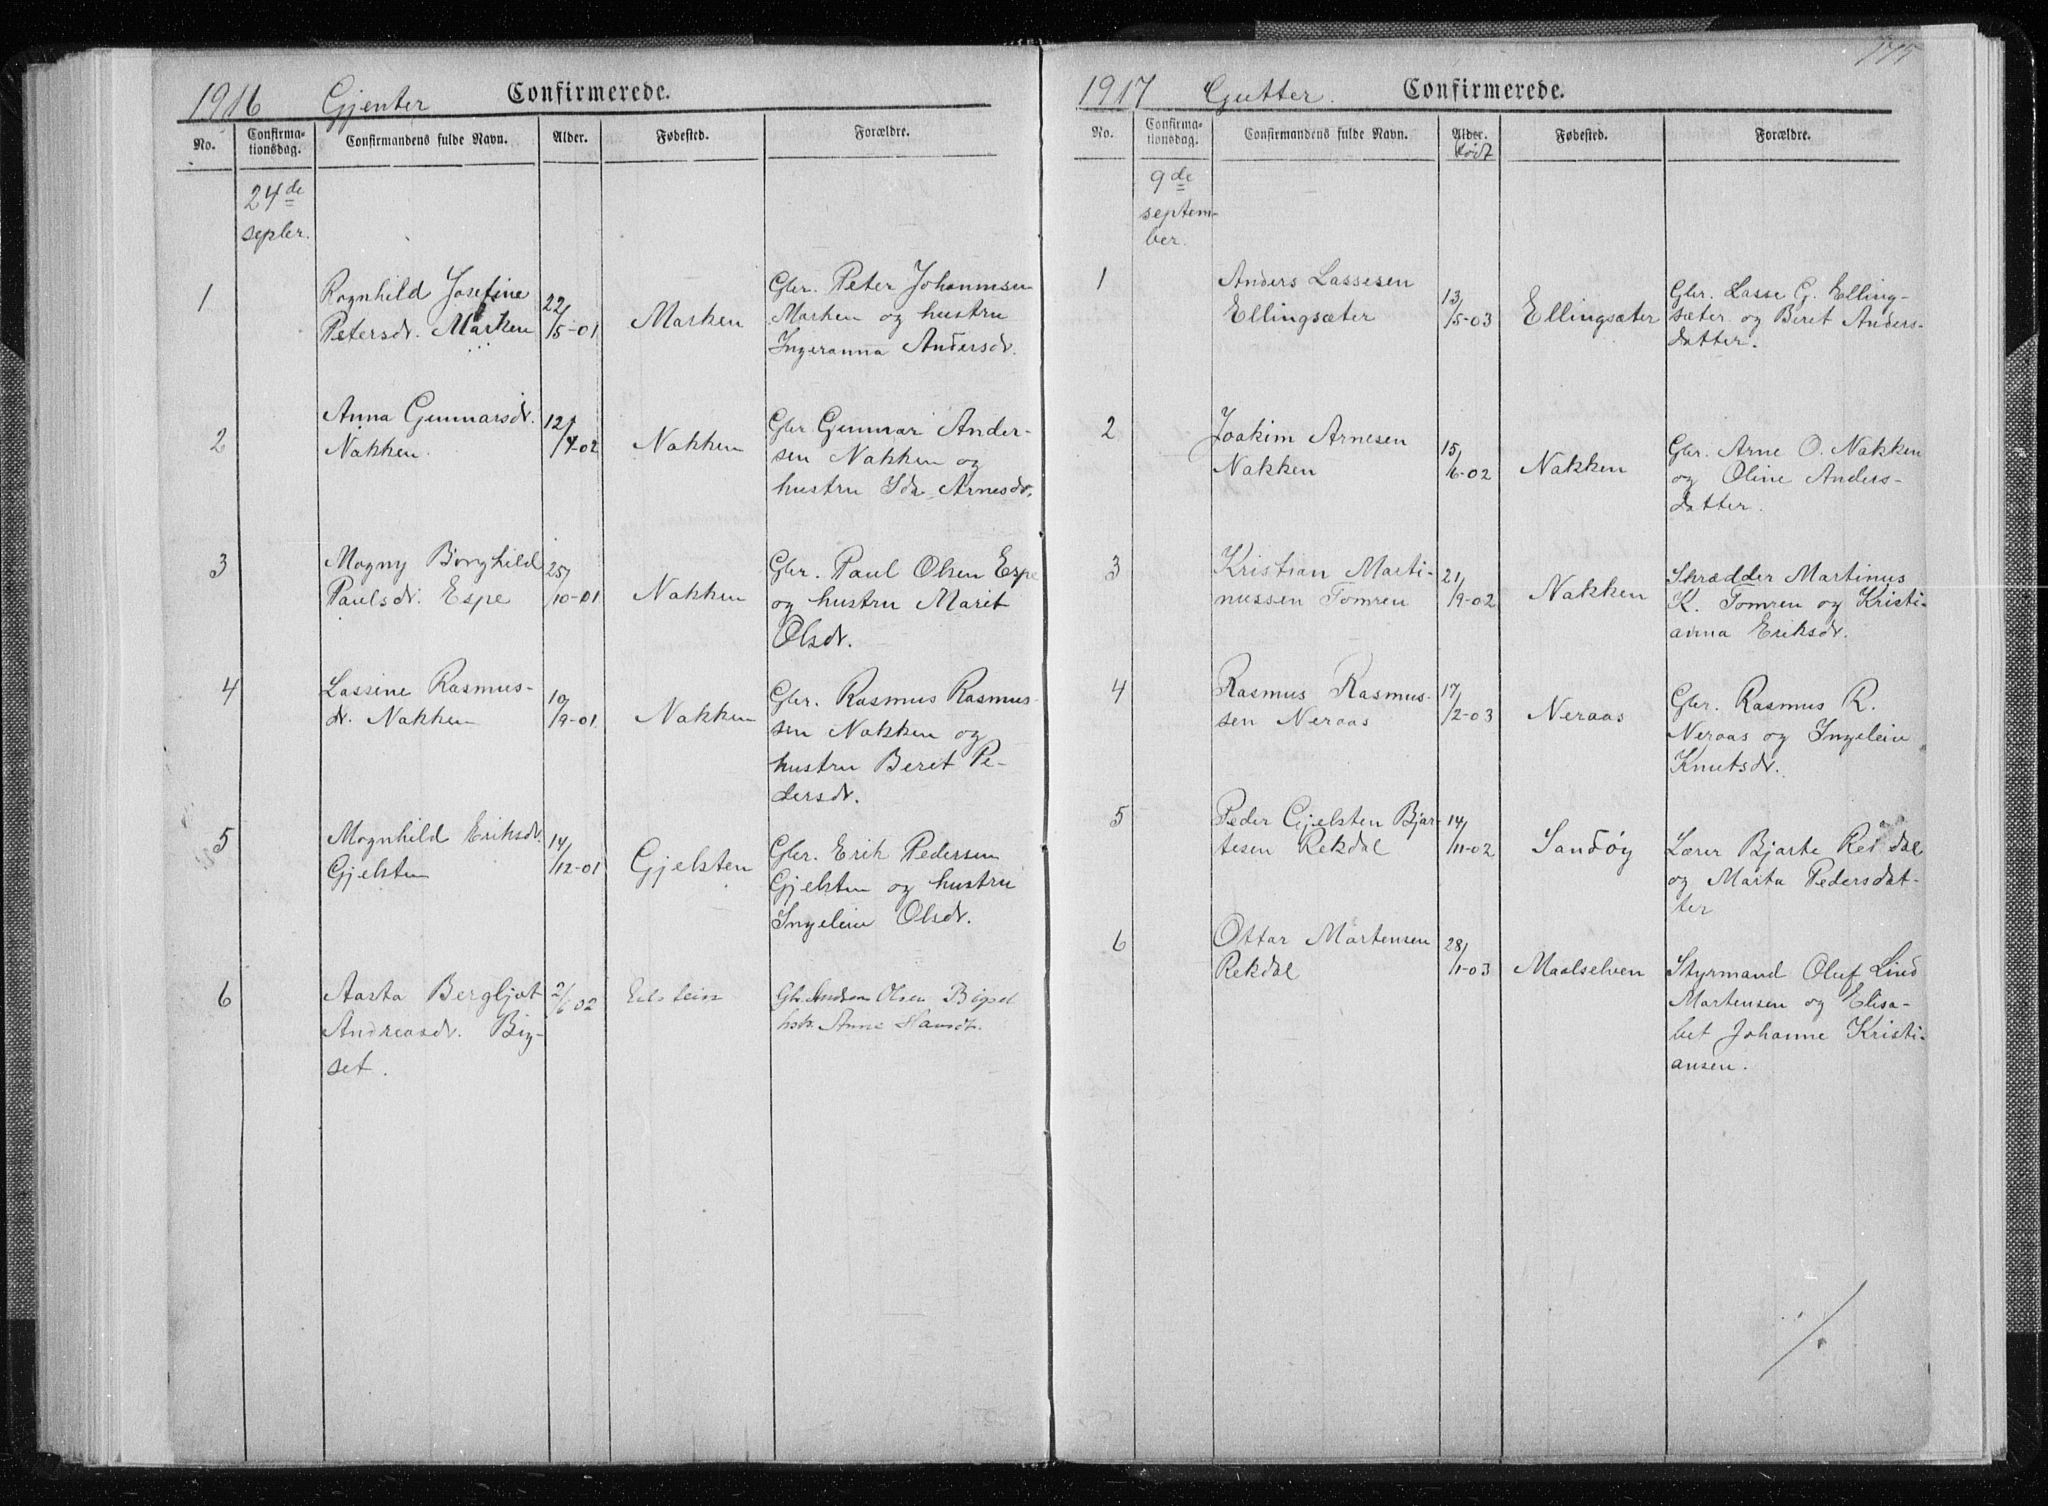 1916 Gjenter Confirmerede.
No. Confirma-tionsdag. Confirmandens fulde Navn. Alder. Fødested. Forældre.
24de
septbr.
1
Rognhild Josefine
Petersdr. Marken
22/5-01
Marken
Gbr. Peter Johannsen
Marken og hustru
Ingeranna Andersdr.
2
Anna Gunnarsdr.
Nakken.
12/4-02
Nakken
Gbr. Gunnar Ander-
sen Nakken og
hustru Ida Arnesdr.
3
Magny Borghild
Paulsdr. Espe
25/10-01
Nakken
Gbr. Paul Olsen Espe
og hustru Marit
Olsdr.
4
Lassine Rasmus-
dr. Nakken
19/9-01
Nakken
Gbr. Rasmus Rasmus-
sen Nakken og
hustru Beret Pe-
dersdr.
5
Magnhild Eriksdr.
Gjelsten
14/12-01
Gjelsten
Gbr. Erik Pedersen
Gjelsten og hustru
Ingelein Olsdr.
6
Aasta Bergljot
Andreasdr. Big-
set.
2/6 02
Eidstein
Gbr. Andreas Olsen Bigset
hstr. Anne Hansdr.
1917 Gutter. Confirmerede.
No. Confirma-tionsdag. Confirmandens fulde Navn. Alder. født Fødested. Forældre.
9de
septem-
ber.
1
Anders Lassesen
Ellingsæter
13/5-03
Ellingsæter
Gbr. Lasse G. Elling-
sæter og Beret Anders-
datter.
2
Joakim Arnesen
Nakken
15/6-02
Nakken
Gbr. Arne O. Nakken
og Oline Anders-
datter.
3
Kristian Marti-
nussen Tomren
21/9-02
Nakken
Skrædder Martinus
K. Tomren og Kristi-
anna Eriksdr.
4
Rasmus Rasmus-
sen Neraas
17/2-03
Neraas
Gbr. Rasmus R.
Neraas og Ingelein
Knutsdr.
5
Peder Gjelsten Bjar-
tesen Rekdal
14/11-02
Sandøy
Lærer Bjarte Rekdal
og Marta Pedersdat-
ter
6
Ottar Martensen
Rekdal
28/1-03
Maalselven
Styrmand Oluf Lind
Martensen og Elisa-
bet Johanne Kristi-
ansen.